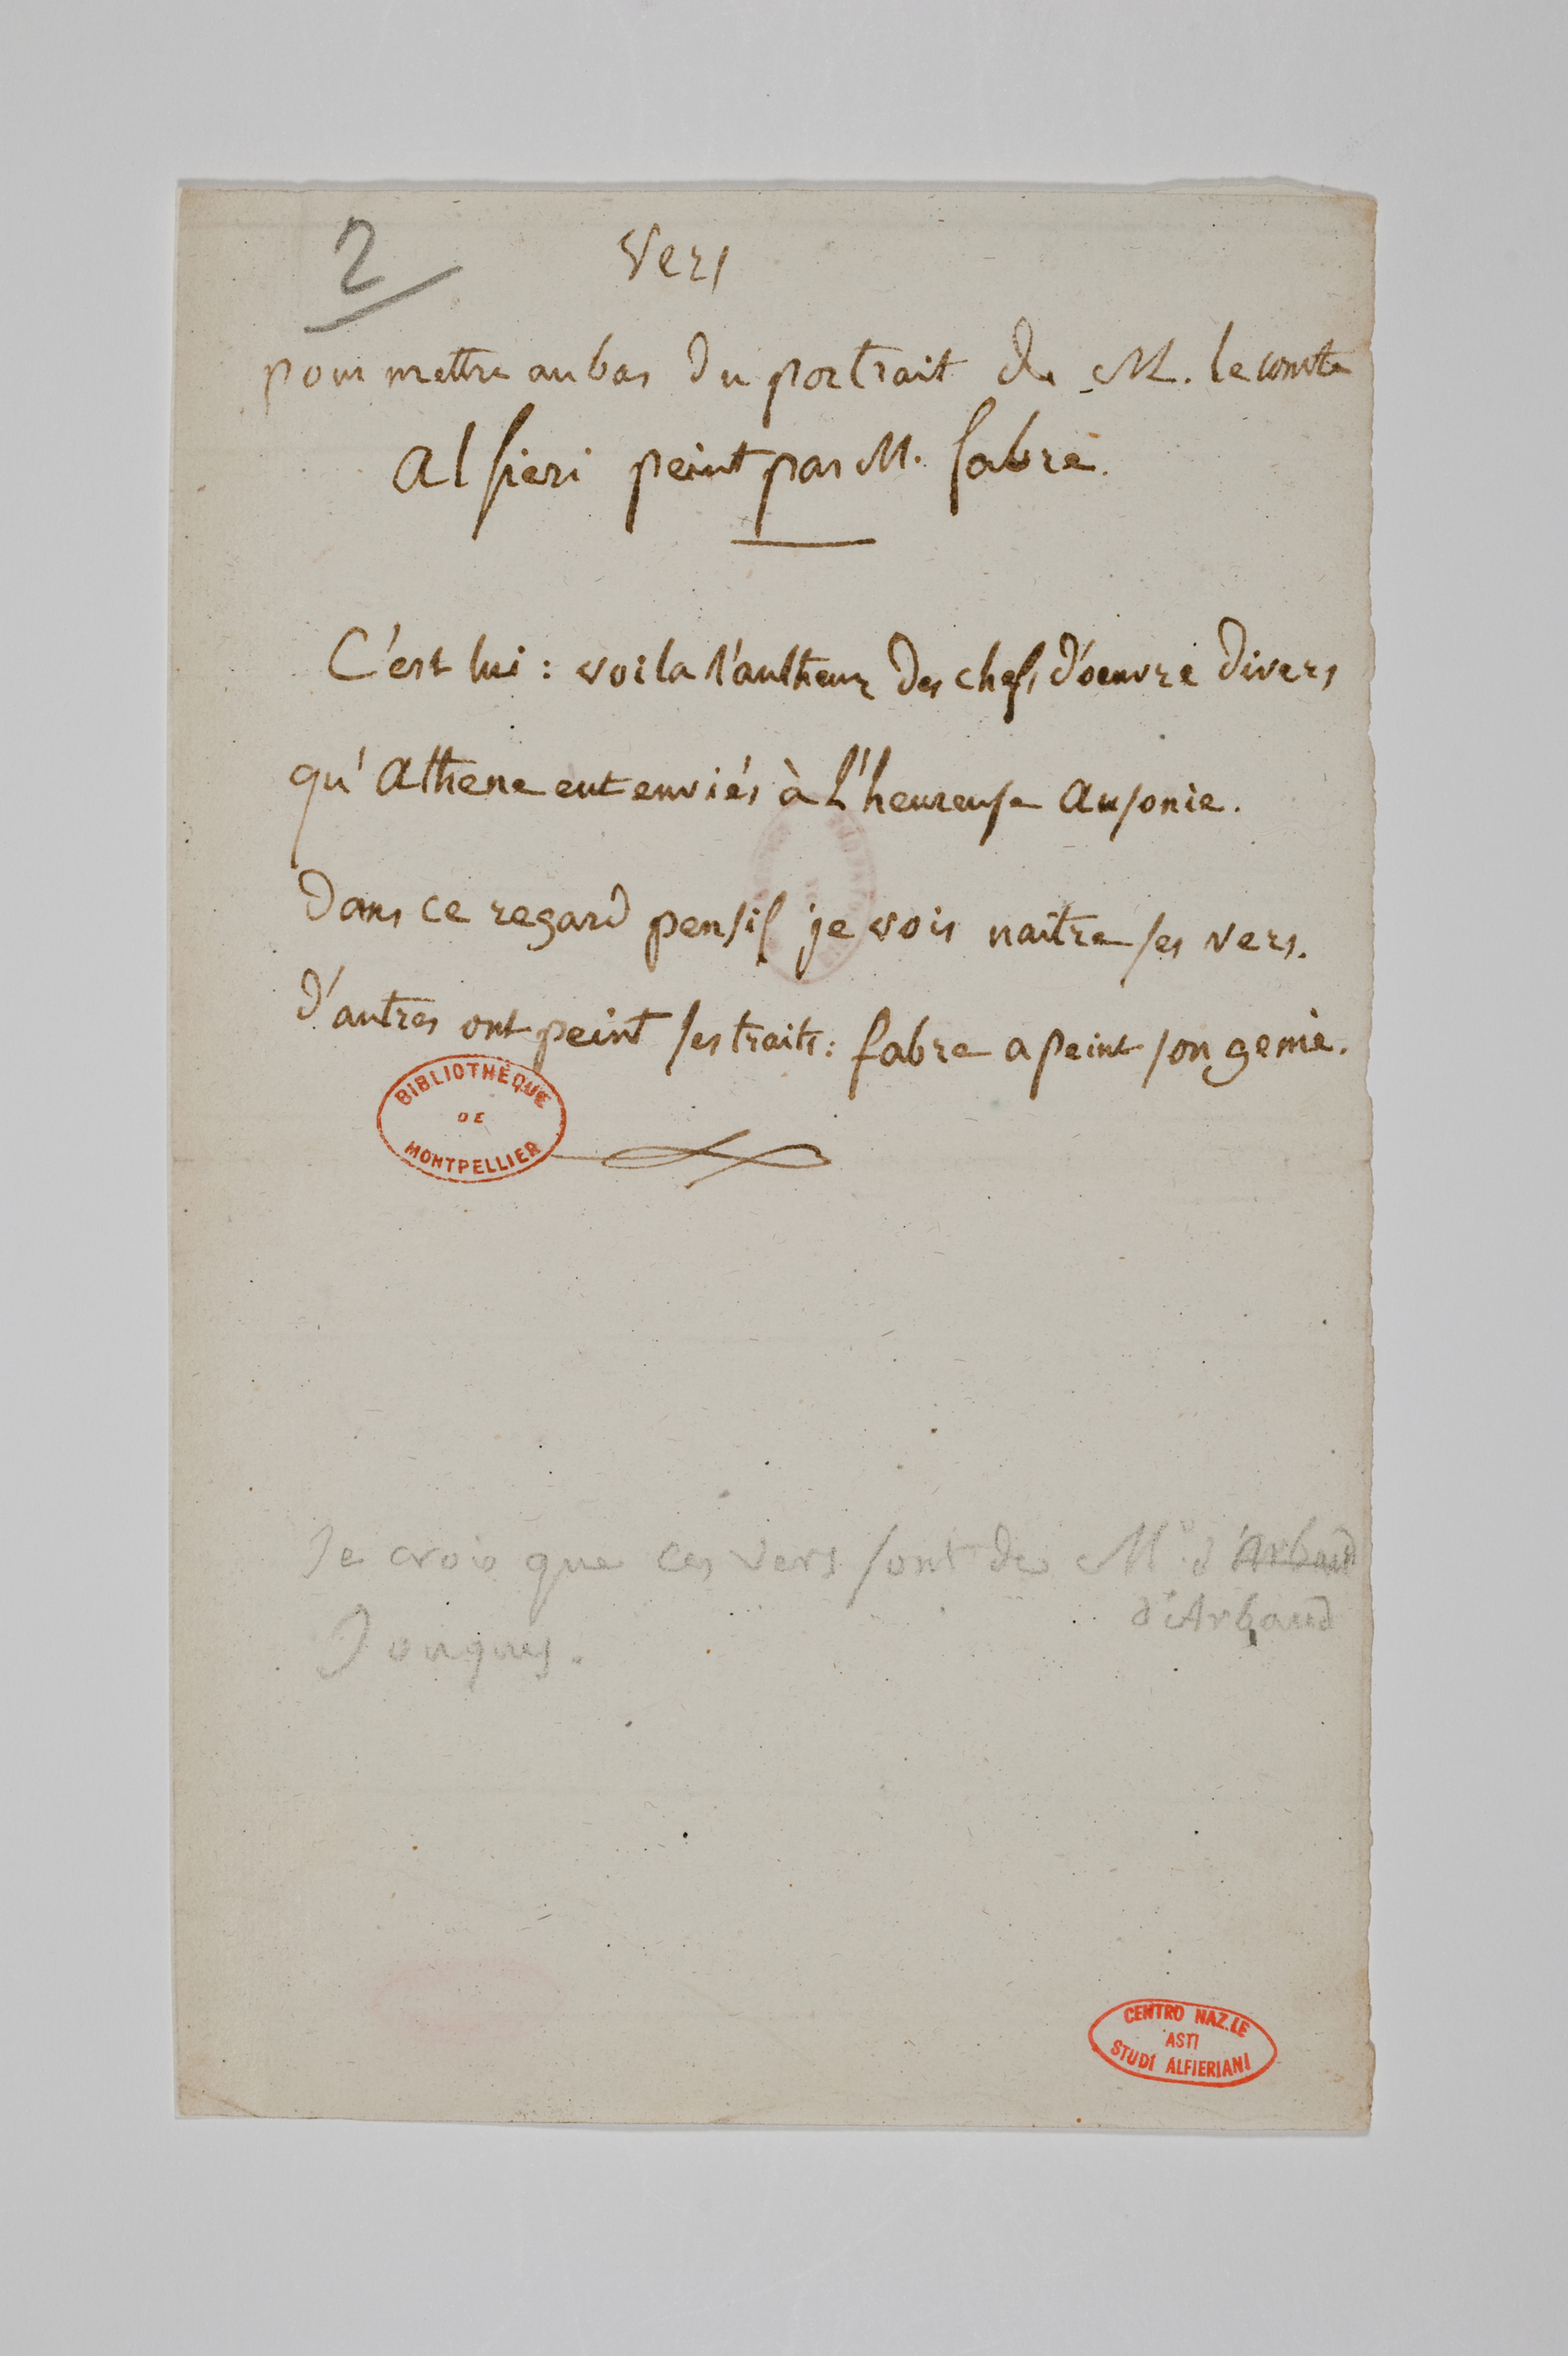 2
Vers
pour mettre au bas du portrait de M. le comte
Alfieri peint par M. fabre.
C'est lui : voila l'autheur des chefs d'oeuvre divers
qu'Athene eut enviés à l'heureuse Ausonie.
Dans ce regard pensif je vois naitre ses vers.
d'autres ont peint ses traits : fabre a peint son genie.
BIBLIOTHÈQUE
DE
MONTPELLIER
Je crois que ces vers sont de Mr. d'Arbaud
d'Arbaud
Jouques.
CENTRO NAZ.LE
ASTI
STUDI ALFIERIANI